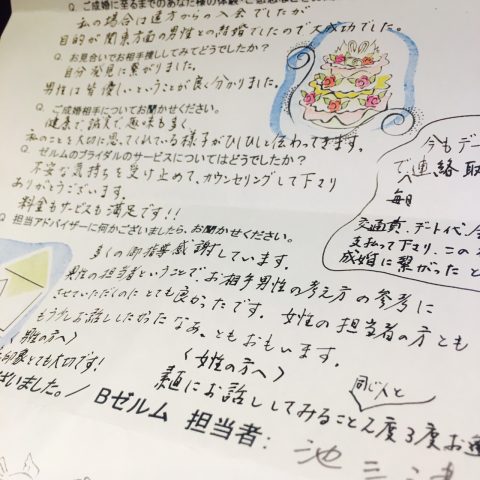 Q. ご成婚に至るまでのあなた様の体験
私の場合は遠方からの入会でしたが
目的が関東方面の男性との結婚でしたので大成功でした。
Q. お見合いでお相手探ししてみてどうでしたか？
自分発見に繋がりました。
男性は皆優しいということが良く分かりました。
Q. ご成婚相手についてお聞かせください。
健康で誠実で趣味も多く、
私のことを大切に思ってくれている様子がひしひし伝わってきます。
Q. ゼルムのブライダルのサービスについてはどうでしたか？
不安な気持ちを受け止めて、カウンセリングして下さり
ありがとうございます。
料金もサービスも満足です!!
Q 担当アドバイザーに何かございましたら、お聞かせください。
多くの御指導感謝しています。
男性の担当者ということで、お相手男性の考え方の参考に
させていただくのにとても良かったです。女性の担当者の方とも
もう少しお話ししたかったなあ、ともおもいます。
今もデー
で連絡取
へ
毎日
交通費、デート代、
支払って下さり、この
成婚に繋がったと
〈女性の方へ〉
とても大切です!
素直にお話ししてみること
同じ人と
2度3度お
ました。
Bゼルム 担当者:
池